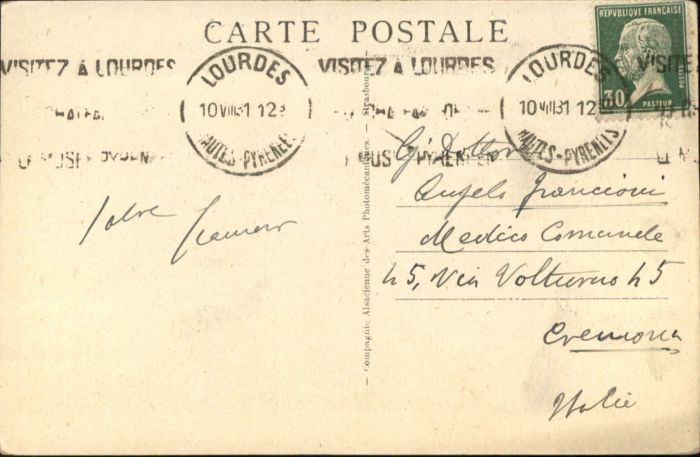 CARTE POSTALE
REPUBLIQUE FRANÇAISE
POSTES
30
PASTEUR
VISITEZ A LOURDES
LOURDES
10 VIII 31 12
HAUTES-PYRENEES
VISITEZ A LOURDES
LOURDES
10 VIII 31 12
HAUTES-PYRENEES
Compagnie Alsacienne des Arts Photomécaniques. — Strasbourg
Dottor
Angelo Francioni
Medico Comunale
45, Via Volturno 45
Cremona
Italie